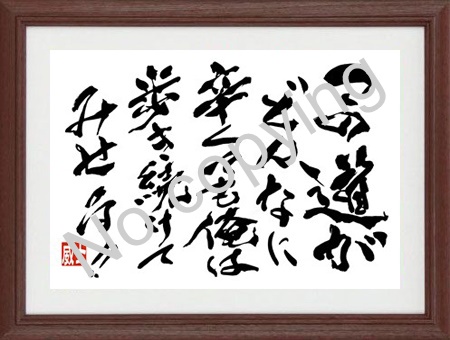 この道が
どんなに
辛くても俺は
歩き続けて
みせる!!
No copying